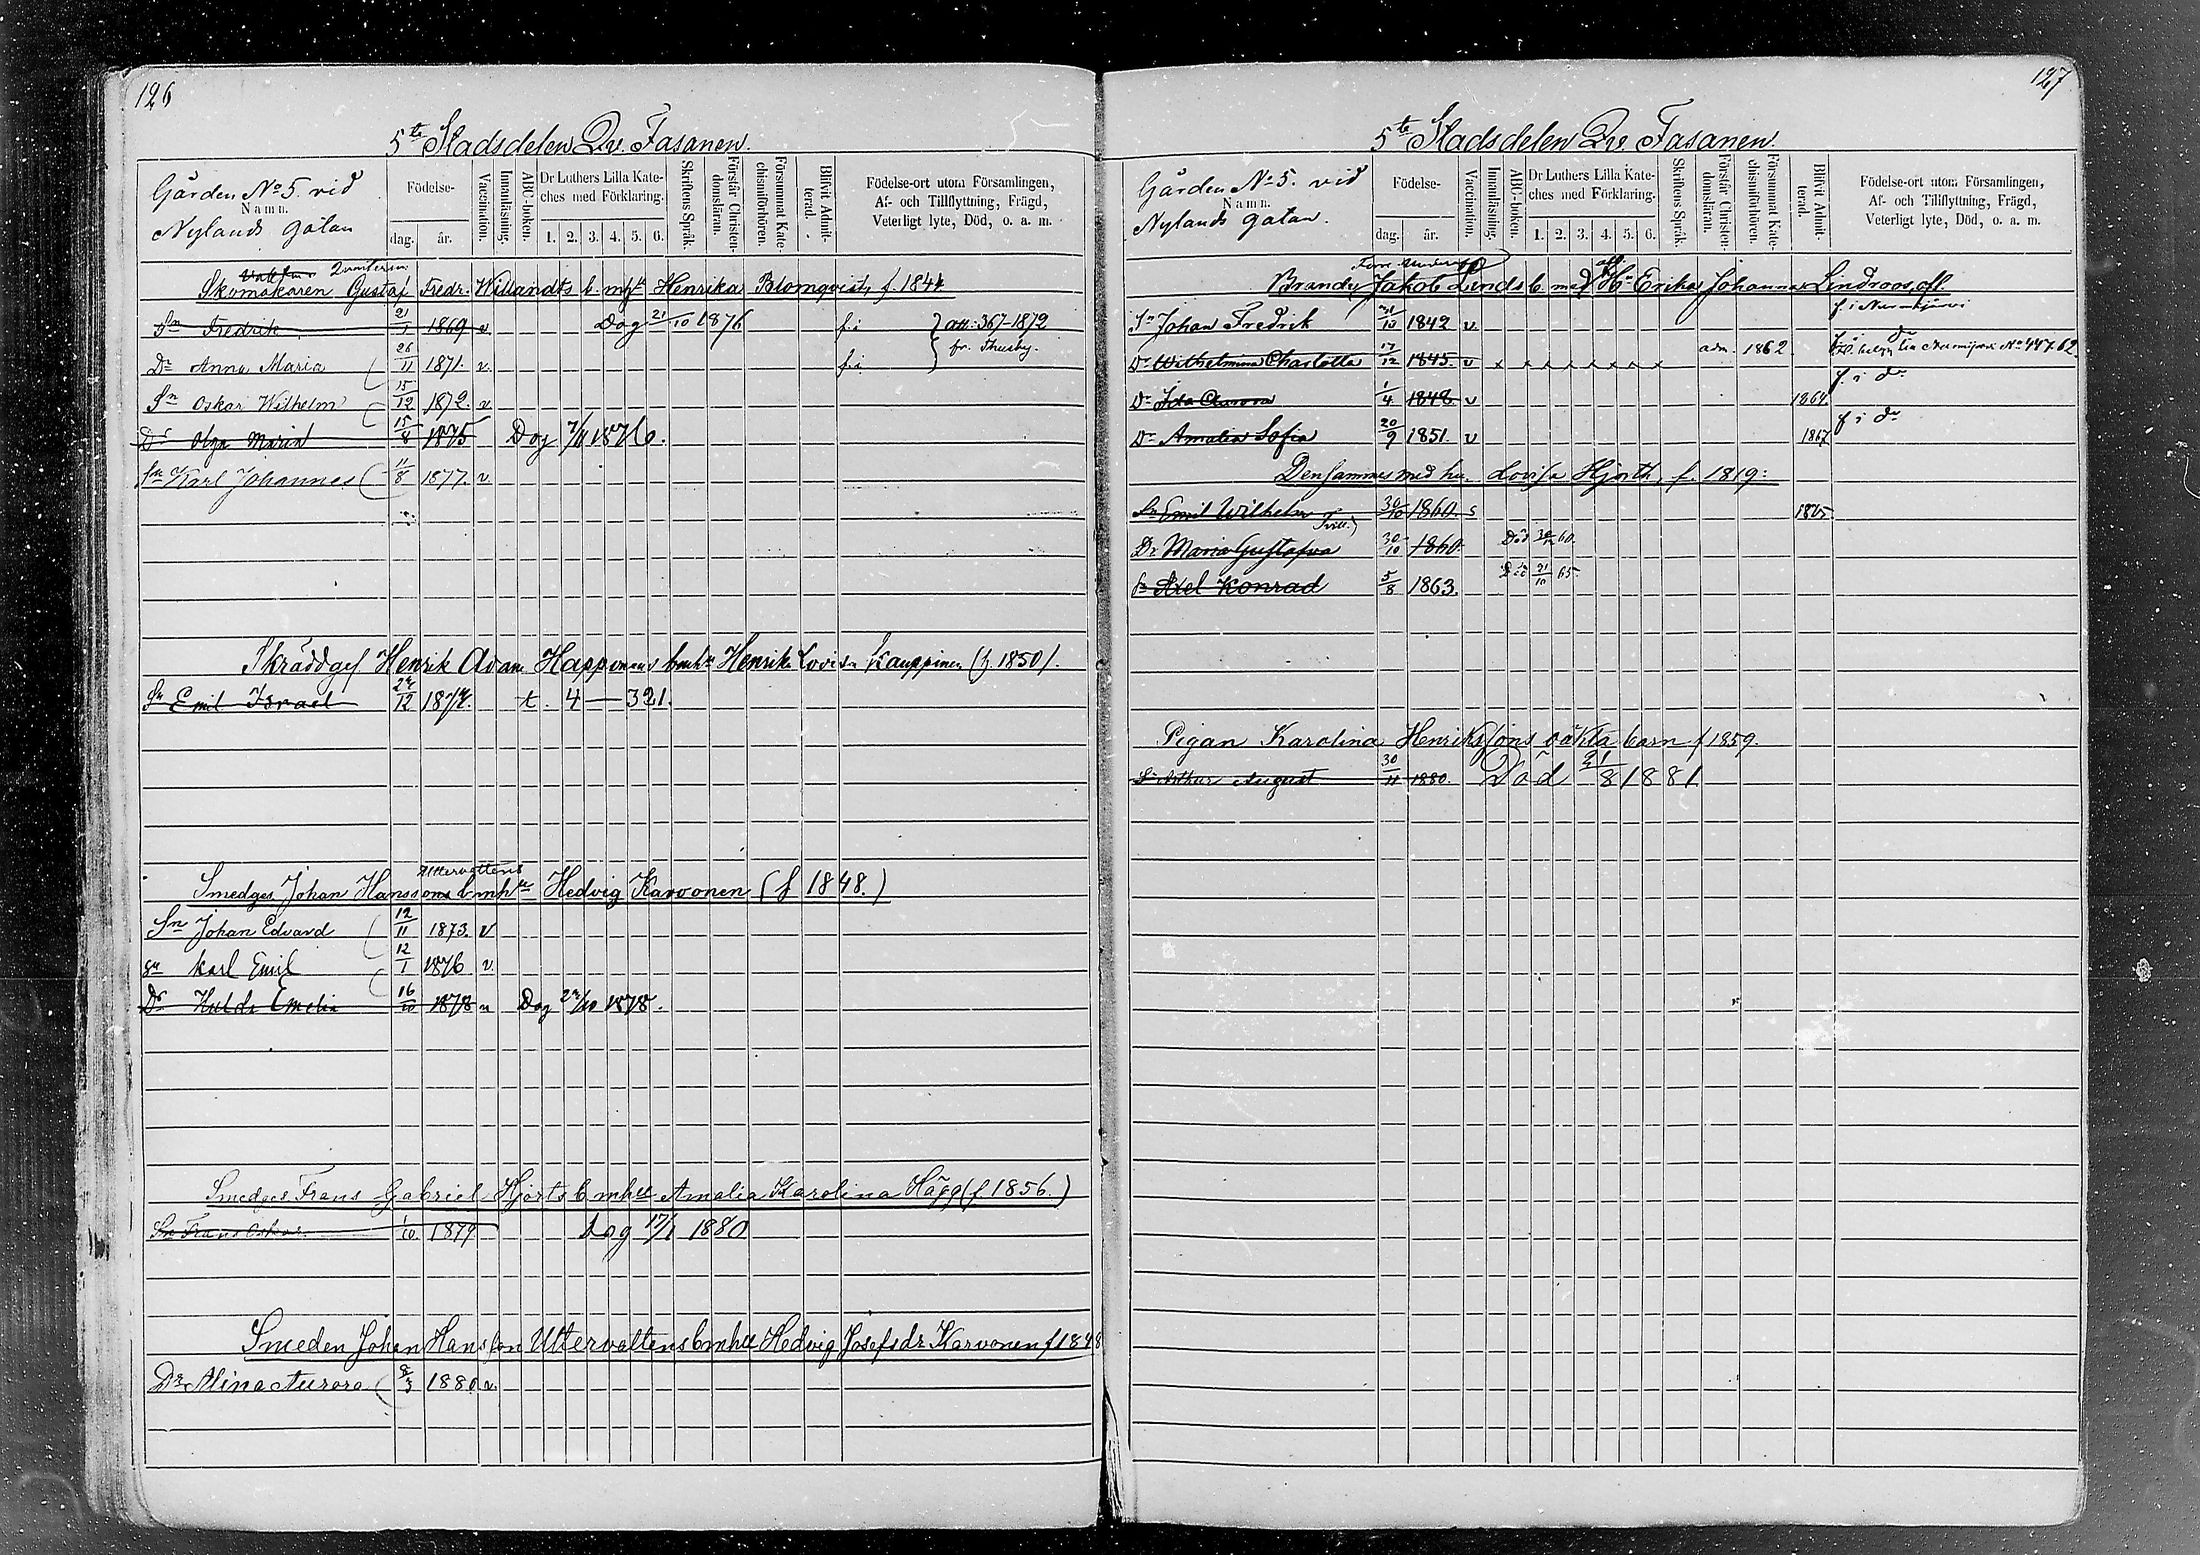 126
5te Stadsdelen Qv. Fasanen.
Gården No 5. vid
Namn.
Nylands gatan
Födelse-
dag.
år.
Vaccination.
Innanläsning.
ABC-boken.
Dr Luthers Lilla Kate-
ches med Förklaring.
1. 2. 3. 4. 5. 6.
Skriftens Språk.
Förstår Christen-
domsläran.
Försummat Kate-
chismiförhören.
Blifvit Admit-
terad.
Födelse-ort utom Församlingen,
Af- och Tillflyttning, Frägd,
Veterligt lyte, Död, o. a. m.
Skomakaren Gustaf Fredr. Willandts b. m hu Henrika Blomqvist, f. 1844
Sn Fredrik 21/1 1869 v Dog 21/10 1876 f. i att: 367-1872
Dr Anna Maria 26/11 1871. v. f. i fr. Thusby.
Sn Oskar Wilhelm 15/12 1872. v
Dr Olga Maria 15/8 1875 Dog 7/11 1876.
Sn Karl Johannes 11/8 1877. v.
Skräddges Henrik Adam Happonens bmhu Henrika Lovisa Kauppinen (f. 1850).
Sn Emil Israel 12 1874. t. 4 — 321.
Uttervattens
Smedges. Johan Hanssons bmhu Hedvig Karvonen (f 1848.)
Sn Johan Edvard 12/11 1873. v
Sn Karl Emil 12/1 1876 v.
Dr Hulda Emelia 16/10 1878 Dog 10 1878.
Smedges Frans Gabriel Hjorts bmhu Amalia Karolina Hägg (f. 1856.)
Sn Frans Oskar 1/10. 1879 Dog 17/1 1880
Smeden Johan Hansson Uttervattens bmhu Hedvig Josefsdr Karvonen f 1848
Dr Alina Aurora 3 1880. v.
127
5te Stadsdelen Qv. Fasanen.
Gården No 5. vid
Namn.
Nylands gatan.
Födelse-
dag.
år.
Vaccination.
Innanläsning.
ABC-boken.
Dr Luthers Lilla Kate-
ches med Förklaring.
1. 2. 3. 4. 5. 6.
Skriftens Språk.
Förstår Christen-
domsläran.
Försummat Kate-
chismiförhören.
Blifvit Admit-
terad.
Födelse-ort utom Församlingen,
Af- och Tillflyttning, Frägd,
Veterligt lyte, Död, o. a. m.
Jakob Linds b. med Hu Erika Johanna Lindroos
f. i Nurmijärvi
Sn Johan Fredrik 10 1842 v.
Dr Wilhelmina Charlotta 17/12 1845. v x x x x x x x x adm. 1862 No 447.62.
f. i do
Dr Ida Aurora 1/4 1848. v 1864.
f i do
Dr Amalia Sofia 20/9 1851. v 1867
Densammes med hu. Lovisa Hjorth, f. 1819:
Sn Emil Wilhelm 30/10 1860. s
Tvill.
Dr Maria Gustafva 30/10 1860. Död 60.
Sn Axel Konrad 5/8 1863. Död 21/10 65.
Pigan Karolina Henriksons oäkta barn f 1859.
Sn Arthur August 30/11 1880. Död 21/8 1881